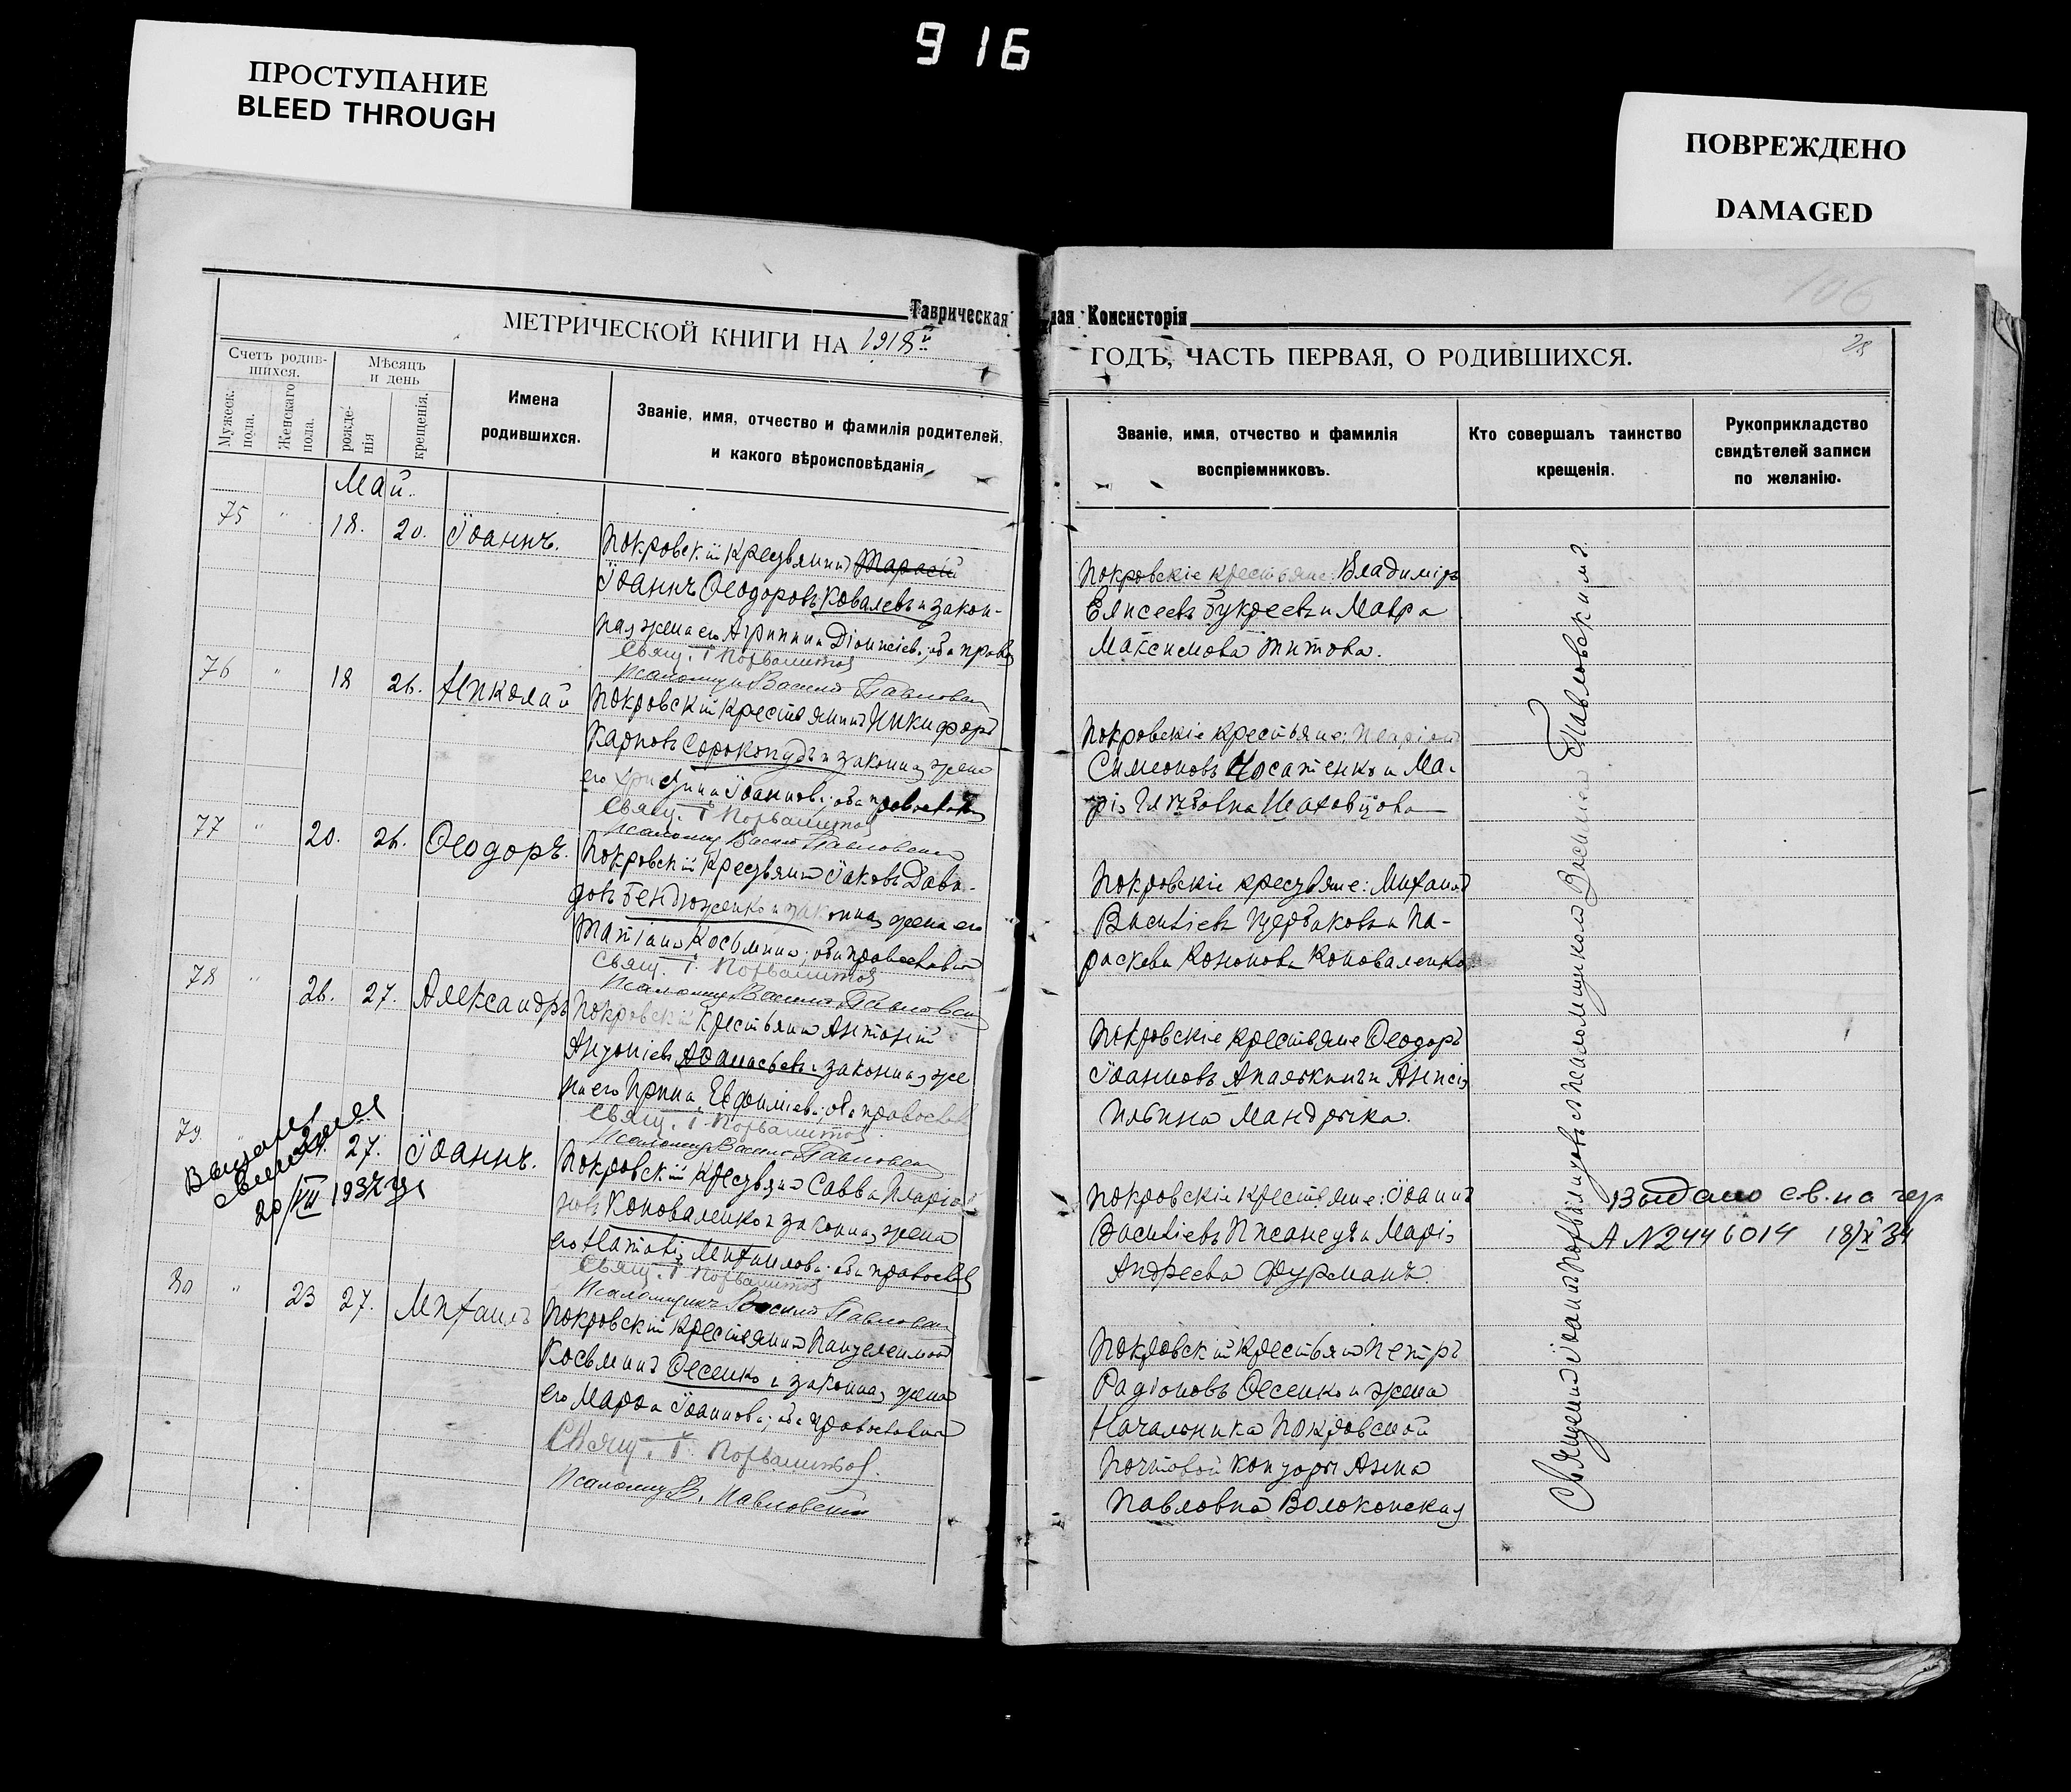 916
ПРОСТУПАНИЕ
BLEED THROUGH
ПОВРЕЖДЕНО
DAMAGED
106
28
Таврическая
ная Консисторія
МЕТРИЧЕСКОЙ КНИГИ НА 1918й
ГОДЪ, ЧАСТЬ ПЕРВАЯ, О РОДИВШИХСЯ.
Счетъ родив-
шихся.
Мужеск. пола.
Женскаго пола.
Мѣсяцъ
и день
рожде-
нія
крещенія.
Имена
родившихся.
Званіе, имя, отчество и фамилія родителей,
и какого вѣроисповѣданія
Званіе, имя, отчество и фамилія
воспріемниковъ.
Кто совершалъ таинство
крещенія.
Рукоприкладство
свидѣтелей записи
по желанію.
Май.
75 " 18. 20. Іоаннъ.
Покровскій крестьянинъ Тарасій
Іоаннъ Ѳеодоровъ Ковалевъ и закон-
ная жена его Агрипина Діонисіева; оба правос
Свящ. І. Похвалитов
Псаломщ Василій Павловскій
Покровскіе крестьяне: Владиміръ
Елисеевъ Букреевъ и Мавра
Максимова Титова.
76 " 18 26. Николай
Покровскій крестьянинъ Никифоръ
Карповъ Сорокопудъ и законная жена
его Христина Іоаннова; оба православн
Свящ. І Похвалитов
Псаломщ Василій Павловскій
Покровскіе крестьяне: Иларіонъ
Симеоновъ Носатенко и Ма-
рія Глѣбовна
77 " 20. 26. Ѳеодоръ.
Покровскій крестьянинъ Іаковъ Дави-
довъ Бендюженко и законная жена его
Татіана Косьмина; оба православн
Свящ. І. Похвалитов
Псаломщ Василій Павловскій
Покровскіе крестьяне: Михаилъ
Васильевъ Щербаковъ и Па-
раскева Кононова Коноваленко
78 " 26. 27. Александръ
Покровскій крестьянинъ Антоній
Антоніевъ Аѳанасьевъ и законная же
на его Ирина Евфиміева; оба православ
Свящ. І. Похвалитов.
Псаломщ Василій Павловскій
Покровскіе крестьяне Ѳеодоръ
Іоанновъ Апалькинъ и Анисія
Ильина Мандрыка.
79. " 27. Іоаннъ.
Выдано
20/VII 1937 г
Покровскій крестьянинъ Савва Иларіо
новъ Коноваленко и законная жена
его Наталія Михаилова; оба православ
Свящ. І. Похвалитов
Псаломщикъ Василій Павловскій
Покровскіе крестьяне: Іоаннъ
Васильевъ Писанецъ и Марія
Андреева Фурманъ.
Выдано св. на
А №2446014 18/X 34
80 " 23 27. Михаилъ
Покровскій крестьянинъ Пантелеимонъ
Косьминъ Ѳесенко и законная жена
его Марѳа Іоаннова; оба православн
Свящ. І. Похвалитов.
Псаломщ В. Павловскій
Покровскій крестьянинъ Петръ
Радіоновъ Ѳесенко и жена
Начальника Покровской
почтовой конторы Анна
Павловна Волоконская
Священникъ Іоаннъ Похвалитовъ съ псаломщикомъ Василіемъ Павловскимъ.